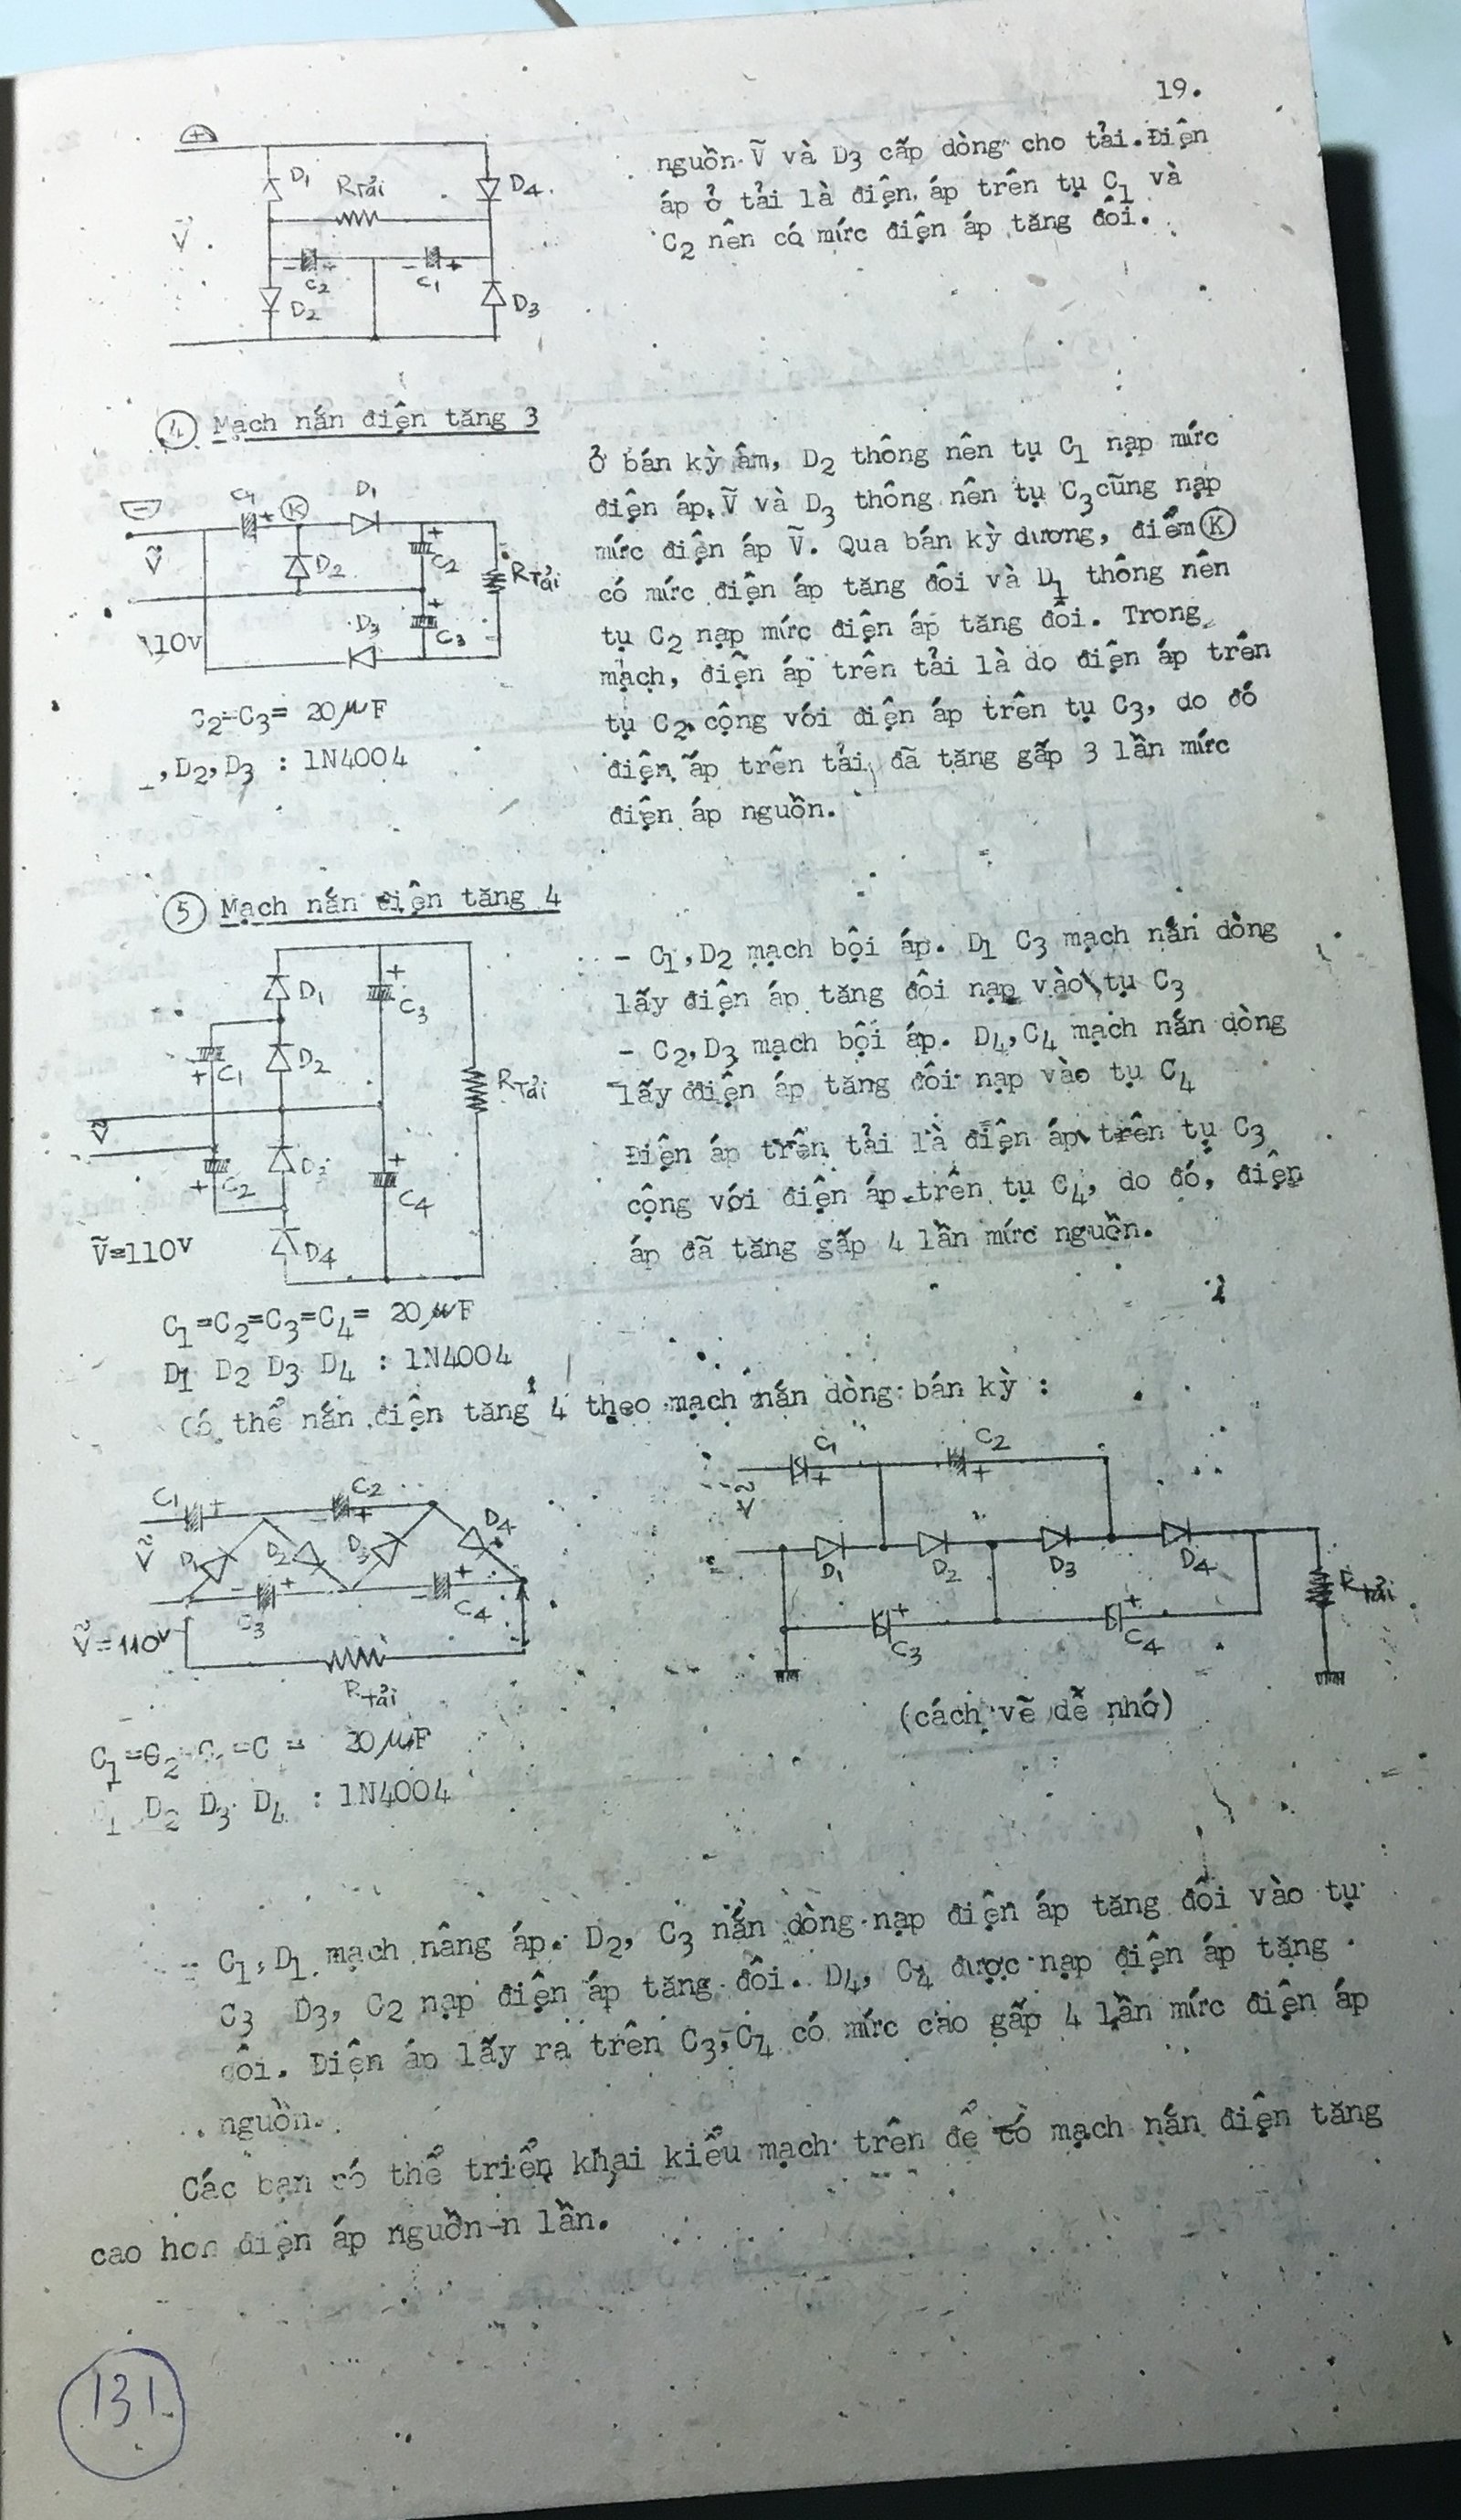 19.
nguồn Ṽ và D3 cấp dòng cho tải. Điện
áp ở tải là điện áp trên tụ C1 và
C2 nên có mức điện áp tăng đôi.
+
D1 RTải D4
V
- + - +
C2 C1
D2 D3
4 Mạch nắn điện tăng 3
Ở bán kỳ âm, D2 thông nên tụ C1 nạp mức
điện áp Ṽ và D3 thông nên tụ C3 cũng nạp
mức điện áp Ṽ. Qua bán kỳ dương, điểm K
có mức điện áp tăng đôi và D1 thông nên
tụ C2 nạp mức điện áp tăng đôi. Trong
mạch, điện áp trên tải là do điện áp trên
tụ C2 cộng với điện áp trên tụ C3, do đó
điện áp trên tải đã tăng gấp 3 lần mức
điện áp nguồn.
- C1 + K D1
Ṽ D2 + C2 RTải
110V D3 + C3
C2=C3= 20 μF
,D2,D3 : 1N4004
5 Mạch nắn điện tăng 4
- C1,D2 mạch bội áp. D1 C3 mạch nắn dòng
lấy điện áp tăng đôi nạp vào tụ C3
- C2,D3 mạch bội áp. D4,C4 mạch nắn dòng
lấy điện áp tăng đôi nạp vào tụ C4
Điện áp trên tải là điện áp trên tụ C3
cộng với điện áp trên tụ C4, do đó, điện
áp đã tăng gấp 4 lần mức nguồn.
D1 + C3
+ C1 D2 RTải
Ṽ
+ C2 D3 + C4
Ṽ=110V D4
C1=C2=C3=C4= 20 μF
D1 D2 D3 D4 : 1N4004
Có thể nắn điện tăng 4 theo mạch nắn dòng bán kỳ :
C1 + C2 +
Ṽ D1 D2 D3 D4
- + - +
C3 C4
Ṽ=110V
Rtải
C1 + C2 +
Ṽ
D1 D2 D3 D4
+ C3 + C4 Rtải
(cách vẽ dễ nhớ)
C1=C2 = 20 μF
D2 D3 D4 : 1N4004
- C1,D1 mạch nâng áp. D2, C3 nắn dòng nạp điện áp tăng đôi vào tụ
C3 D3, C2 nạp điện áp tăng đôi. D4, C4 được nạp điện áp tăng
đôi. Điện áp lấy ra trên C3,C4 có mức cao gấp 4 lần mức điện áp
nguồn.
Các bạn có thể triển khai kiểu mạch trên để có mạch nắn điện tăng
cao hơn điện áp nguồn n lần.
131